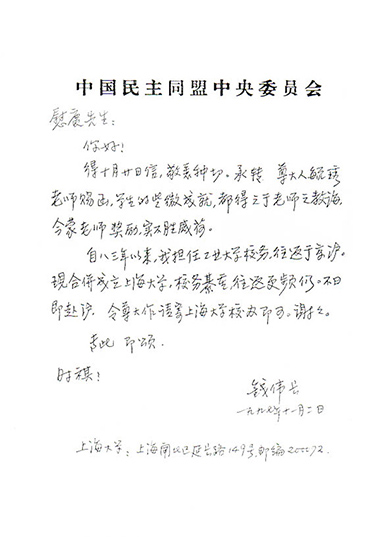 中国民主同盟中央委员会
慰慶先生：
你好！
得十月廿日信，敬悉种切。承转 尊大人毓琇
老师赐函，学生的些微成就，都得之于老师之教诲，
今蒙老师奖励，实不胜感荷。
自八三年以来，我担任工业大学校务，往返于京沪。
现合併成立上海大学，校务綦重，往返更频仍。不日
即赴沪， 令尊大作请寄上海大学校办即可。谢谢。
专此 即颂
时祺！
钱伟长
一九九七年十一月二日
上海大学：上海闸北区延长路149号，邮编200072.